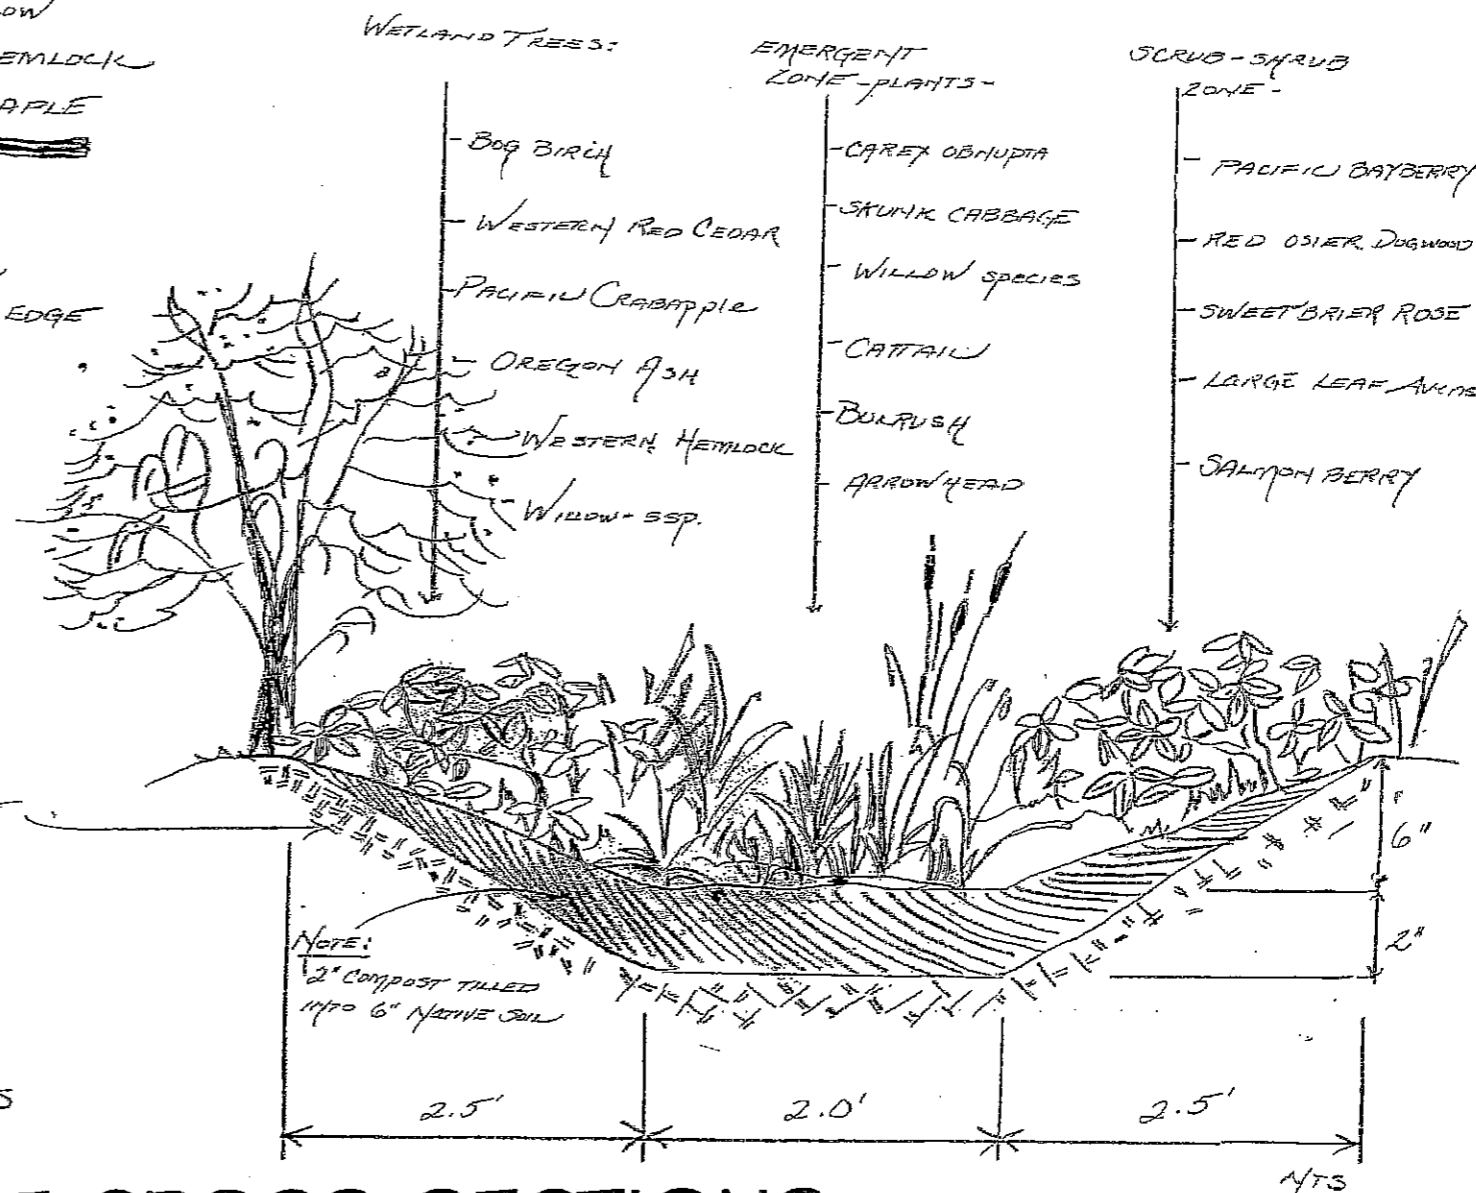 EMLOCK
APLE
EDGE
WETLAND TREES:
BOG BIRCH
WESTERN RED CEDAR
PACIFIC CRABAPPLE
OREGON ASH
WESTERN HEMLOCK
WILLOW-SSP.
EMERGENT
ZONE-PLANTS-
CAREX OBNUPTA
SKUNK CABBAGE
WILLOW SPECIES
CATTAIL
BULRUSH
ARROWHEAD
SCRUB-SHRUB
ZONE-
PACIFIC BAYBERRY
RED OSIER DOGWOOD
SWEETBRIER ROSE
LARGE LEAF
SALMON BERRY
6"
2"
NOTE:
2" COMPOST TILLED
INTO 6" NATIVE SOIL
S
2.5'
2.0'
2.5'
NTS
CROSS SECTIONS